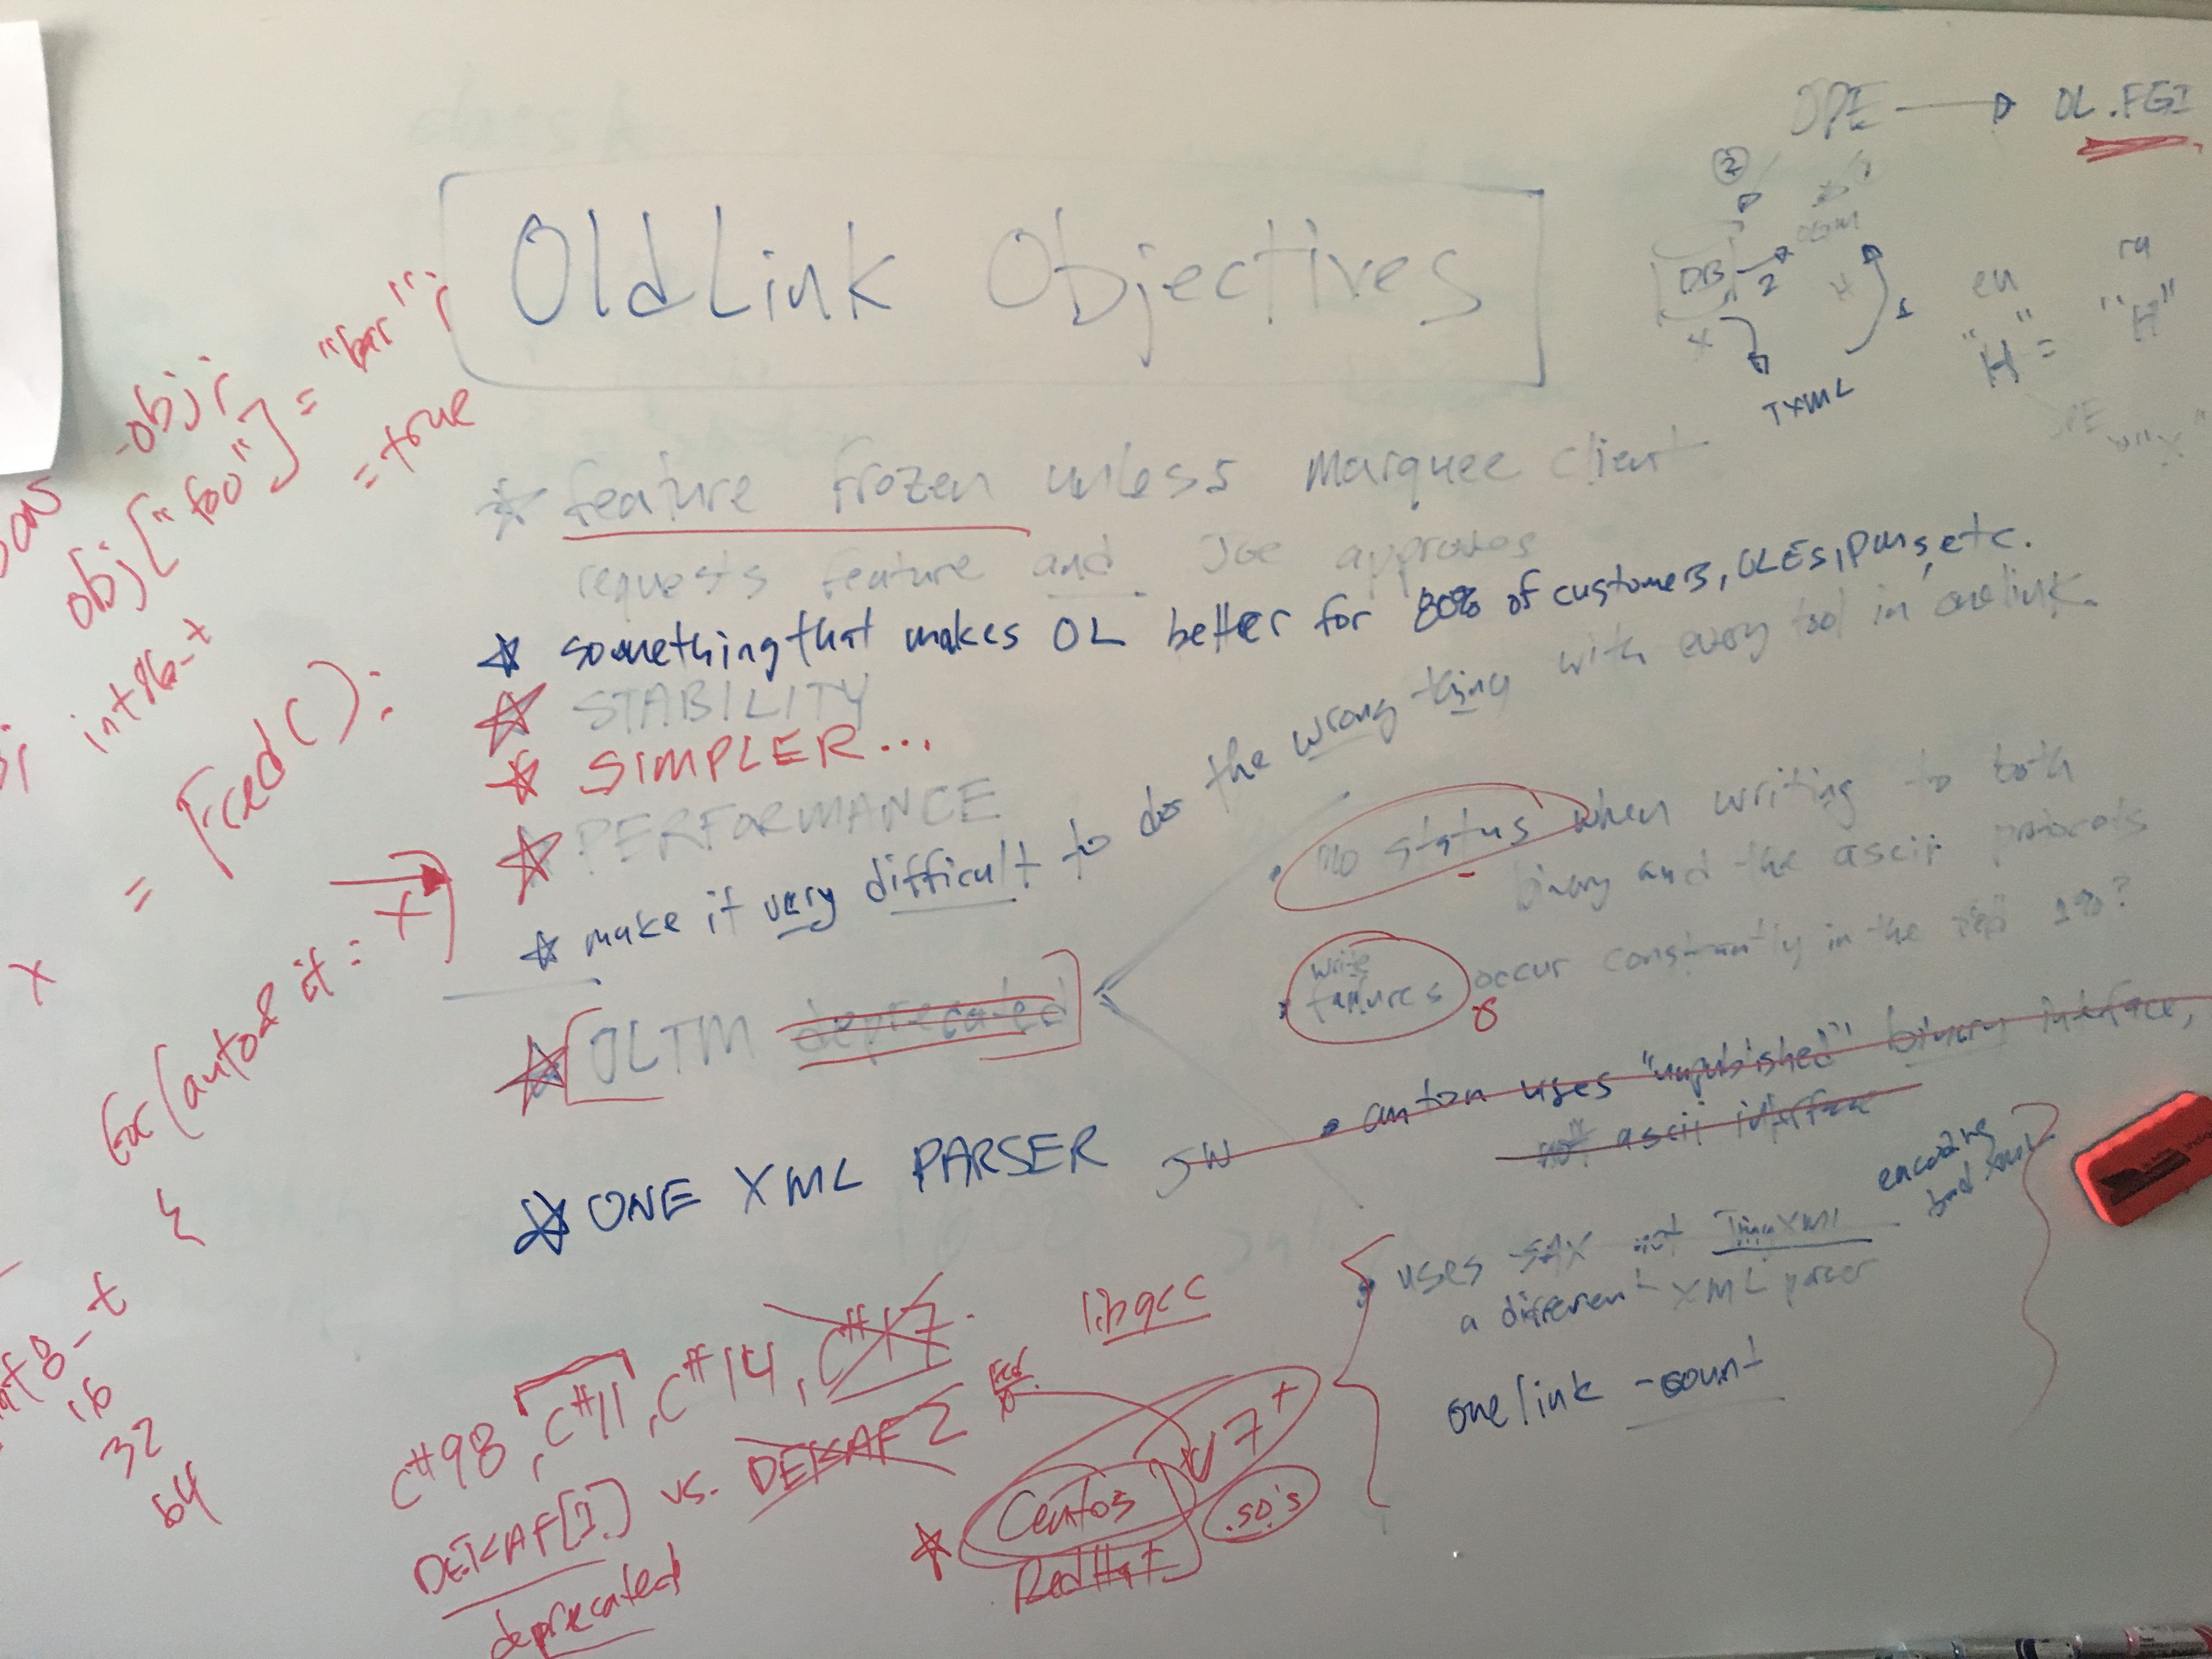 OldLink Objectives
* feature frozen unless Marquee client
requests feature and Joe approves
* something that makes OL better for 80% of customers, OLEs, PMs, etc.
* STABILITY
* SIMPLER...
* PERFORMANCE
* make it very difficult to do the wrong thing with every tool in onelink.
* OLTM deprecated
* ONE XML PARSER
• no status when writing to both
binary and the ascii protocols
• write
failures occur constantly in the 1%?
SW • anton uses "unpublished" binary interface,
not ascii interface
• uses SAX not TinyXML encoding
a different XML parser
onelink -count
OPE → OL.FGI
2
DB 2
1
X
TXML
en ru
"H" = "H"
obj
obj["foo"] = "bar";
= true
int16_t
x = Fred();
for(auto& it : x)
{
8_t
16
32
64
C#98, C#11, C#14, C#17.
libgcc
DEKAF[1] vs. DEKAF2
deprecated
* Centos v7+
.so's
RedHat